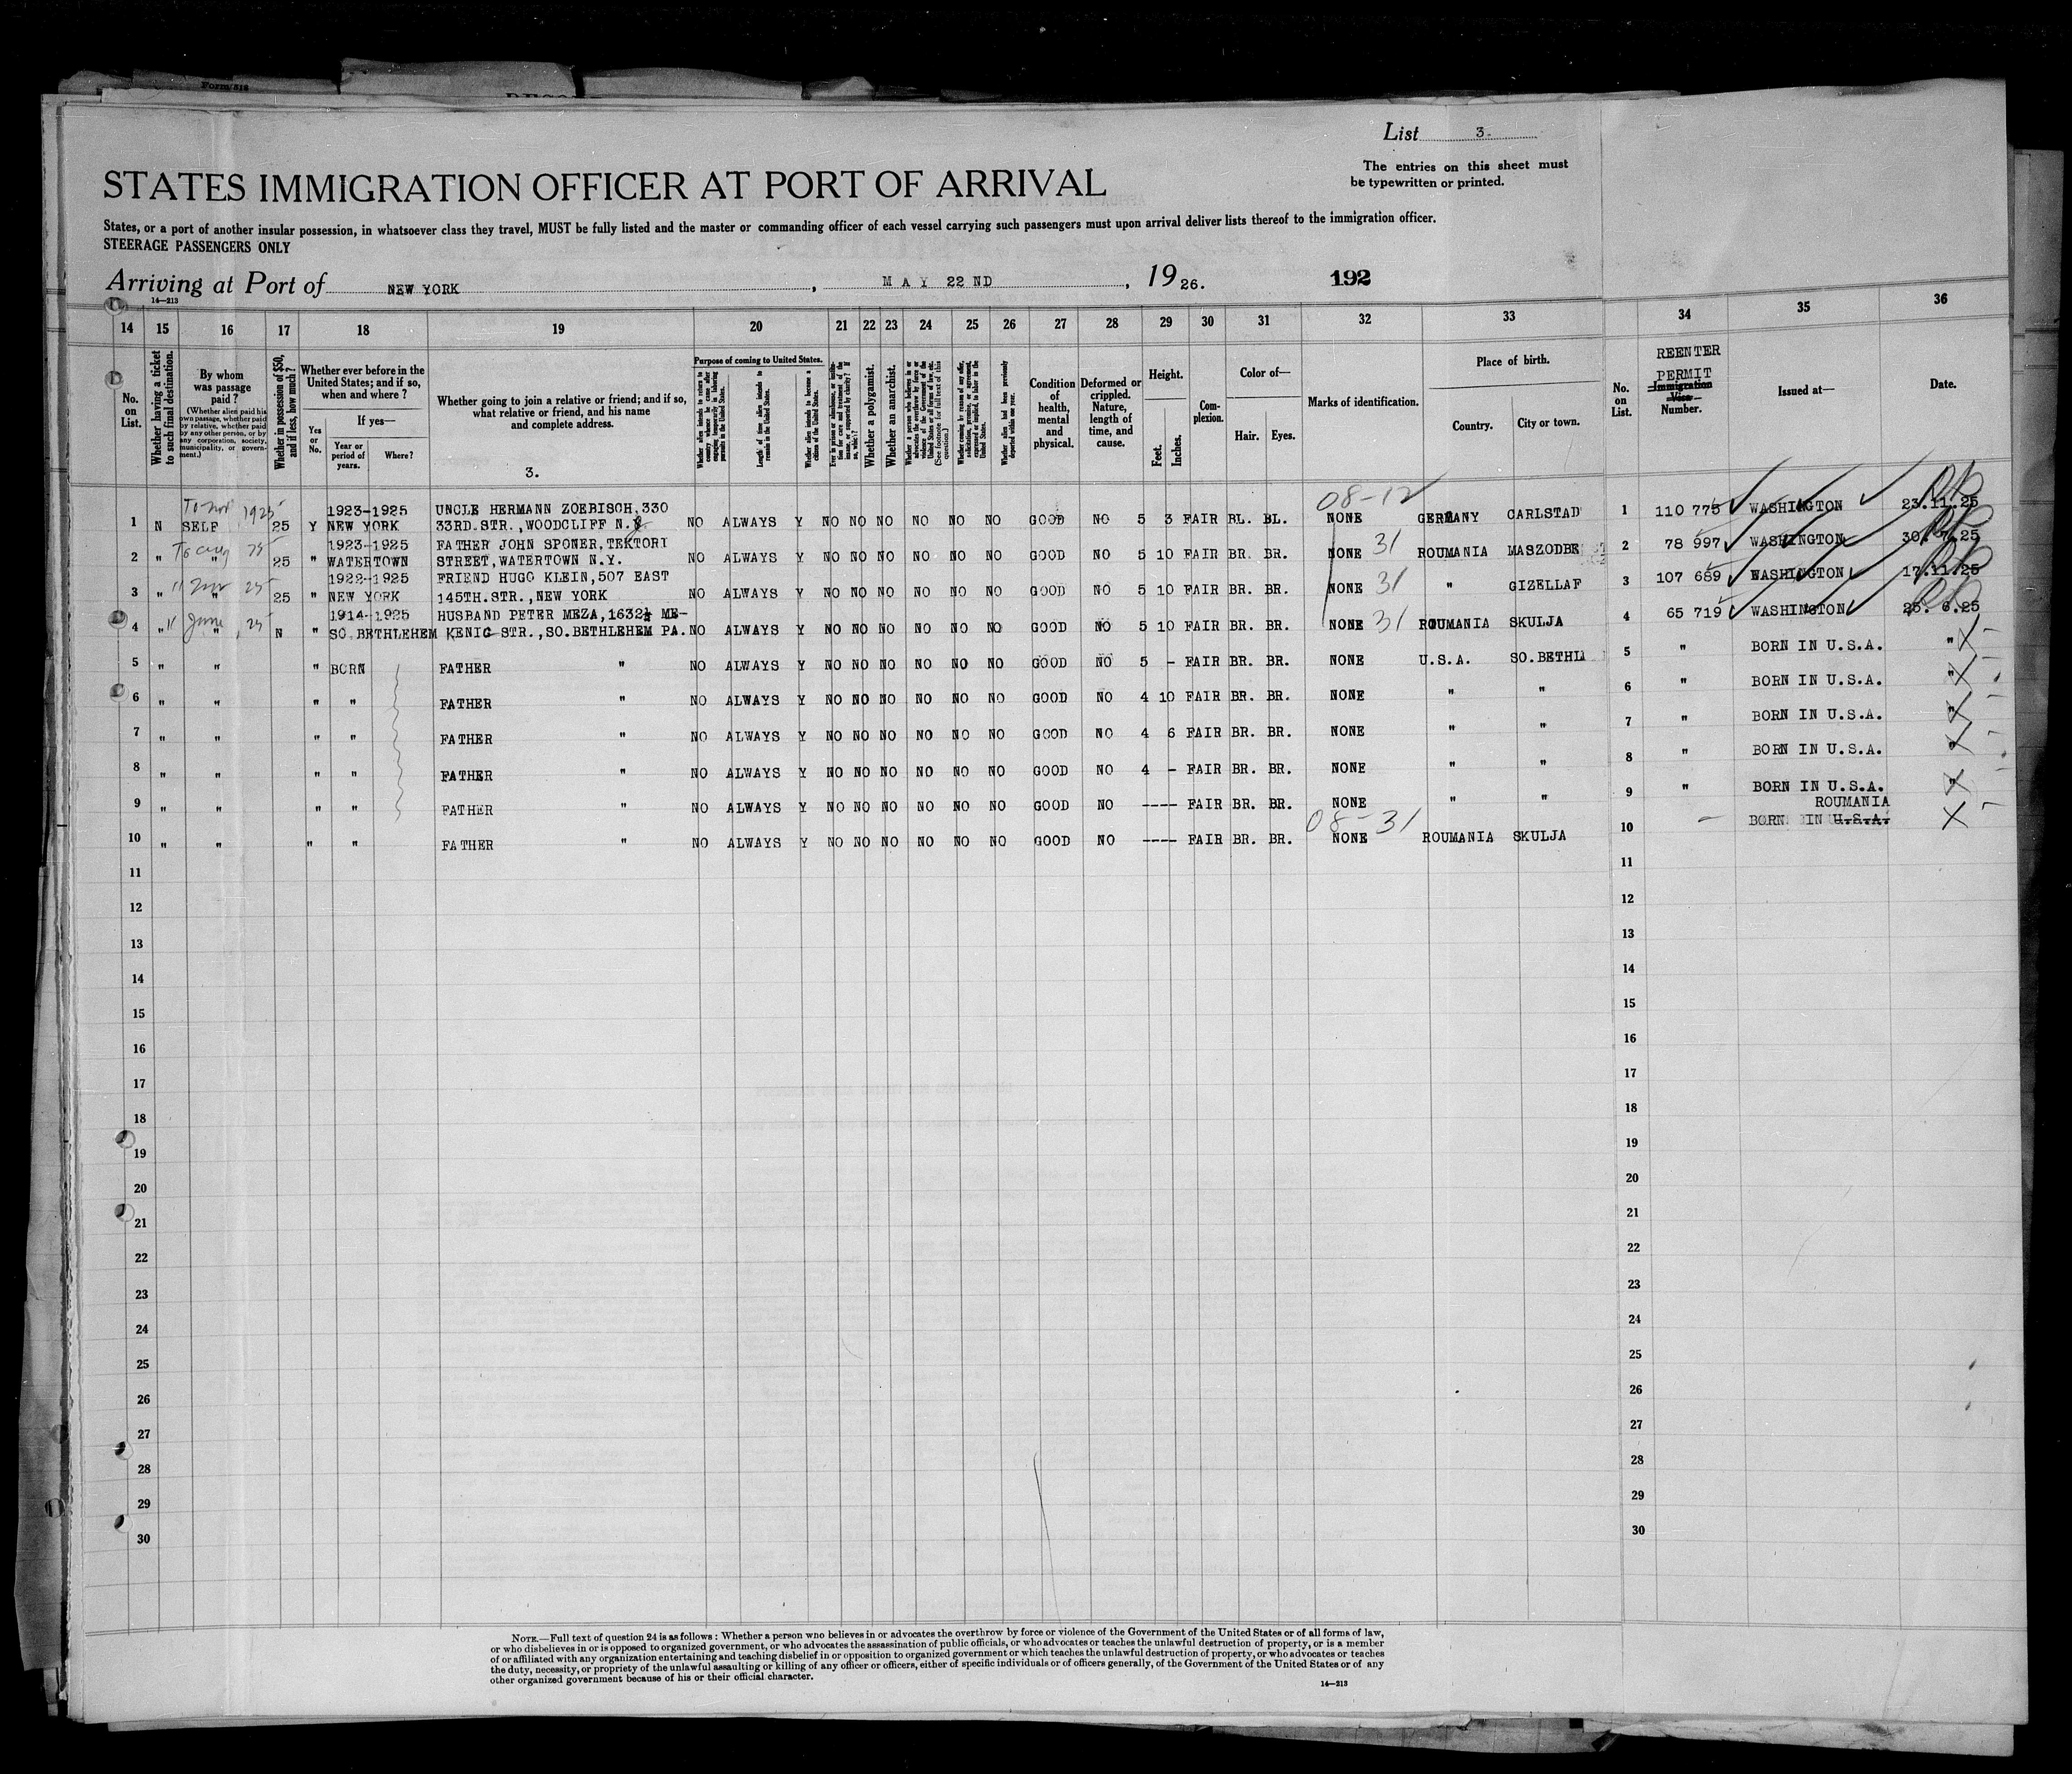 Form 518
List 3.
The entries on this sheet must
be typewritten or printed.
STATES IMMIGRATION OFFICER AT PORT OF ARRIVAL
States, or a port of another insular possession, in whatsoever class they travel, MUST be fully listed and the master or commanding officer of each vessel carrying such passengers must upon arrival deliver lists thereof to the immigration officer.
STEERAGE PASSENGERS ONLY
Arriving at Port of NEW YORK, MAY 22ND, 1926. 192
14—213
14 15 16 17 18 19 20 21 22 23 24 25 26 27 28 29 30 31 32 33 34 35 36
No. on List.
Whether having a ticket to such final destination.
By whom was passage paid?
(Whether alien paid his own passage, whether paid by relative, whether paid by any other person, or by any corporation, society, municipality, or government.)
Whether in possession of $50, and if less, how much?
Whether ever before in the United States; and if so, when and where?
Yes or No.
If yes—
Year or period of years.
Where?
Whether going to join a relative or friend; and if so, what relative or friend, and his name and complete address.
3.
Purpose of coming to United States.
Whether alien intends to return to country whence he came after engaging temporarily in laboring pursuits in the United States.
Length of time alien intends to remain in the United States.
Whether alien intends to become a citizen of the United States.
Whether a polygamist.
Whether an anarchist.
(See footnote for full text of this question.)
Whether alien had been previously deported within one year.
Condition of health, mental and physical.
Deformed or crippled. Nature, length of time, and cause.
Height.
Feet.
Inches.
Complexion.
Color of—
Hair.
Eyes.
Marks of identification.
Place of birth.
Country.
City or town.
No. on List.
REENTER
PERMIT
Immigration Visa Number.
Issued at—
Date.
To Nov 1925 1923-1925 UNCLE HERMANN ZOEBISCH,330 08-12
1 N SELF 25 Y NEW YORK 33RD.STR.,WOODCLIFF N. NO ALWAYS Y NO NO NO NO NO NO GOOD NO 5 3 FAIR BL. BL. NONE GERMANY CARLSTAD 1 110 775 WASHINGTON 23.11.25
To Aug 25 1923-1925 FATHER JOHN SPONER,TEKTORI
2 " " 25 " WATERTOWN STREET,WATERTOWN N.Y. NO ALWAYS Y NO NO NO NO NO NO GOOD NO 5 10 FAIR BR. BR. NONE 31 ROUMANIA MASZODBE 2 78 997 WASHINGTON 30. 7.25
" Nov 25 1922-1925 FRIEND HUGO KLEIN,507 EAST
3 " " 25 " NEW YORK 145TH.STR.,NEW YORK NO ALWAYS Y NO NO NO NO NO NO GOOD NO 5 10 FAIR BR. BR. NONE 31 " GIZELLAF 3 107 689 WASHINGTON 17.11.25
" June, 25 1914-1925 HUSBAND PETER MEZA,1632½ ME-
4 " " N " SO.BETHLEHEM KENIG STR.,SO.BETHLEHEM PA. NO ALWAYS Y NO NO NO NO NO NO GOOD NO 5 10 FAIR BR. BR. NONE 31 ROUMANIA SKULJA 4 65 719 WASHINGTON 25. 6.25
5 " " " BORN FATHER " NO ALWAYS Y NO NO NO NO NO NO GOOD NO 5 - FAIR BR. BR. NONE U.S.A. SO.BETHL 5 " BORN IN U.S.A. "
6 " " " " FATHER " NO ALWAYS Y NO NO NO NO NO NO GOOD NO 4 10 FAIR BR. BR. NONE " " 6 " BORN IN U.S.A. "
7 " " " " FATHER " NO ALWAYS Y NO NO NO NO NO NO GOOD NO 4 6 FAIR BR. BR. NONE " " 7 " BORN IN U.S.A. "
8 " " " " FATHER " NO ALWAYS Y NO NO NO NO NO NO GOOD NO 4 - FAIR BR. BR. NONE " " 8 " BORN IN U.S.A. "
9 " " " " FATHER " NO ALWAYS Y NO NO NO NO NO NO GOOD NO ---- FAIR BR. BR. NONE " " 9 " BORN IN U.S.A. "
08-31 ROUMANIA
10 " " " " FATHER " NO ALWAYS Y NO NO NO NO NO NO GOOD NO ---- FAIR BR. BR. NONE ROUMANIA SKULJA 10 - BORN IN U.S.A. X
11 11
12 12
13 13
14 14
15 15
16 16
17 17
18 18
19 19
20 20
21 21
22 22
23 23
24 24
25 25
26 26
27 27
28 28
29 29
30 30
NOTE.—Full text of question 24 is as follows: Whether a person who believes in or advocates the overthrow by force or violence of the Government of the United States or of all forms of law,
or who disbelieves in or is opposed to organized government, or who advocates the assassination of public officials, or who advocates or teaches the unlawful destruction of property, or is a member
of or affiliated with any organization entertaining and teaching disbelief in or opposition to organized government or which teaches the unlawful destruction of property, or who advocates or teaches
the duty, necessity, or propriety of the unlawful assaulting or killing of any officer or officers, either of specific individuals or of officers generally, of the Government of the United States or of any
other organized government because of his or their official character.
14—213